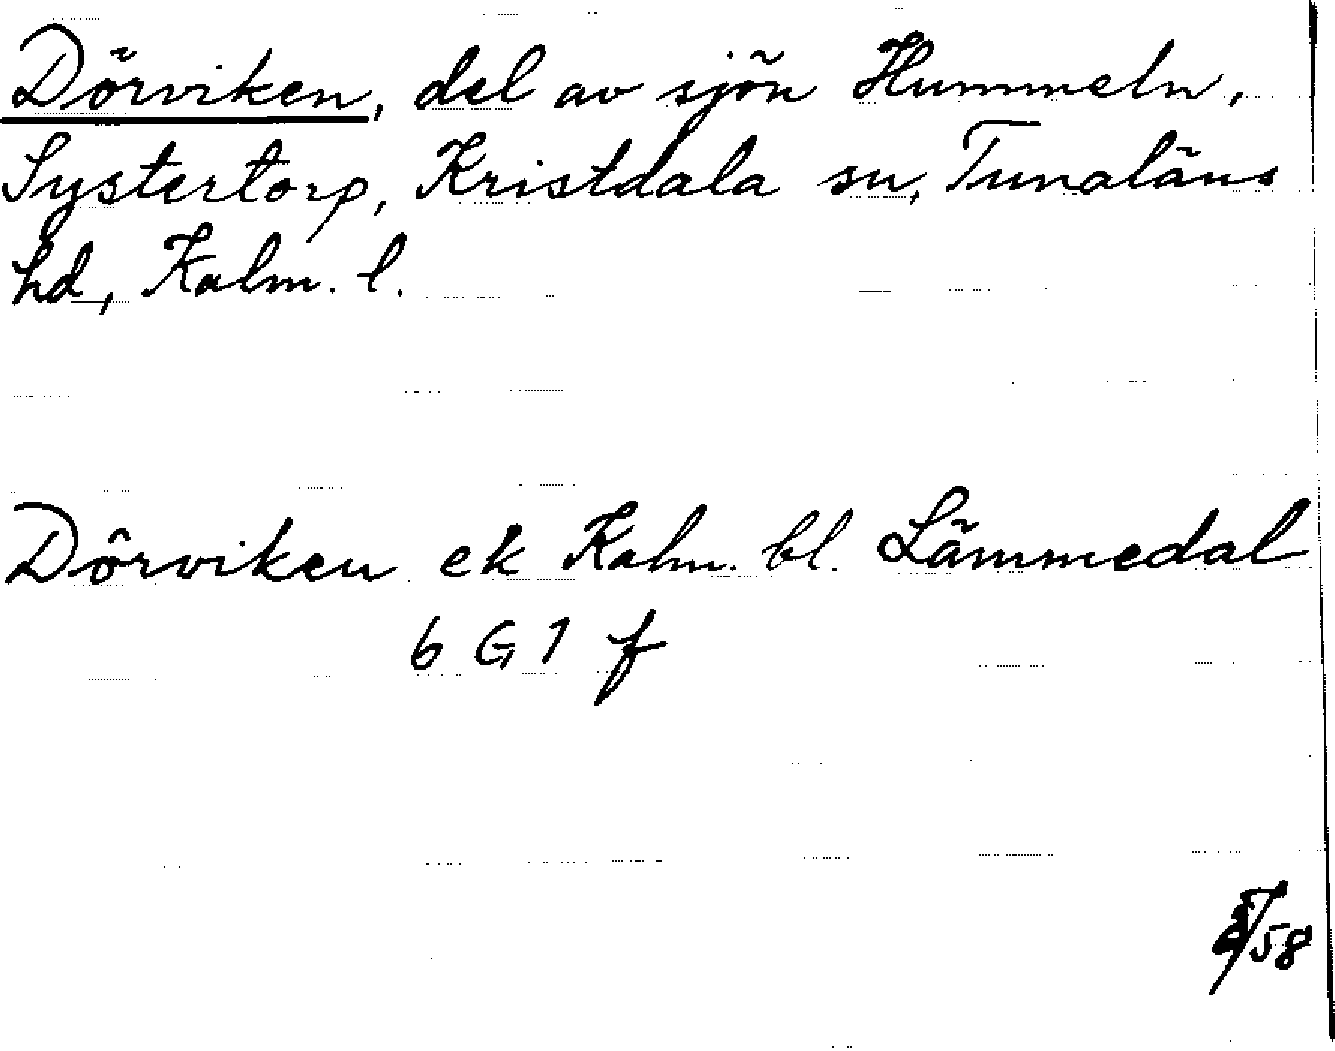 Dörviken, del av sjön Hummeln,
Systertorp, Kristdala sn, Tunaläns
hd, Kalm. l.
Dörviken ek Kalm. bl. Lämmedal
6 G 1 f
/58